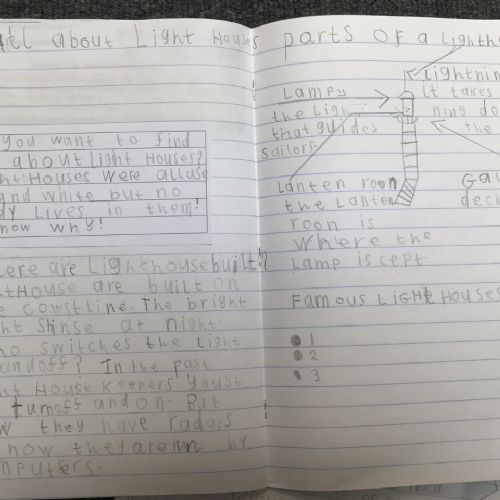 All about Light Houses
you want to find
about Light Houses?
ht Houses were all
and white but no
dy Lives in them!
now why!
ere are Lighthouse built?
htHouse are built on
e cowstline. The bright
ht shinse at night.
o switches the Light
and off? In the past
ht House keepers youst
turn off and on. But
w they have radars
now they are un by
mputers.
parts of a Lighth
Lightnin
It takes
ning do
the
Lamp
the ligh
that guides
sailors.
Lanten roon
the Lanten
roon is
where the
Lamp is cept.
Gal
deck
Famous Light Houses
1
2
3